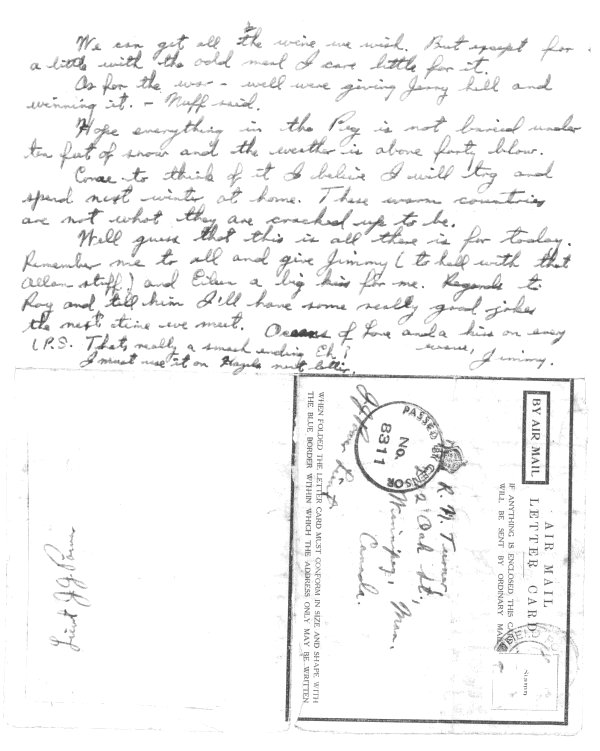 We can get all the wine we wish. But except for
a little with the odd meal I care little for it.
As for the war - well were giving Jerry hell and
winning it. - Nuff said.
Hope everything in the Peg is not buried under
ten feet of snow and the weather is above forty below.
Come to think of it I believe I will try and
spend next winter at home. These warm countries
are not what they are cracked up to be.
Well guess that this is all there is for today.
Remember me to all and give Jimmy (to hell with that
Allan stuff) and Eileen a big kiss for me. Regards to
Roy and tell him I'll have some really good jokes
the next time we meet. Oceans of Love and a kiss on every
wave, Jimmy.
(P.S. That's really a smash ending Eh!
I must use it on Hazel's next letter.
BY AIR MAIL
AIR MAIL
LETTER CARD
IF ANYTHING IS ENCLOSED THIS CARD
WILL BE SENT BY ORDINARY MAIL
Stamp
R. N. Turner
Oak St.,
Winnipeg, Man.
Canada.
PASSED BY CENSOR
No.
8311
WHEN FOLDED THE LETTER CARD MUST CONFORM IN SIZE AND SHAPE WITH
THE BLUE BORDER WITHIN WHICH THE ADDRESS ONLY MAY BE WRITTEN
Lieut